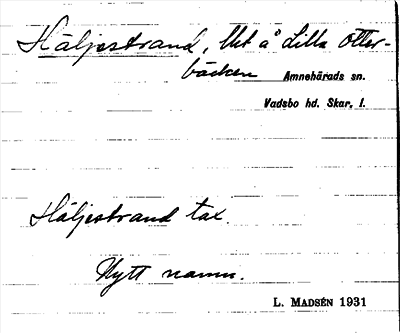 Häljestrand, lht å Lilla Otter-
bäcken Amnehärads sn.
Vadsbo hd. Skar. l.
Häljestrand tax.
Nytt namn.
L. MADSÉN 1931